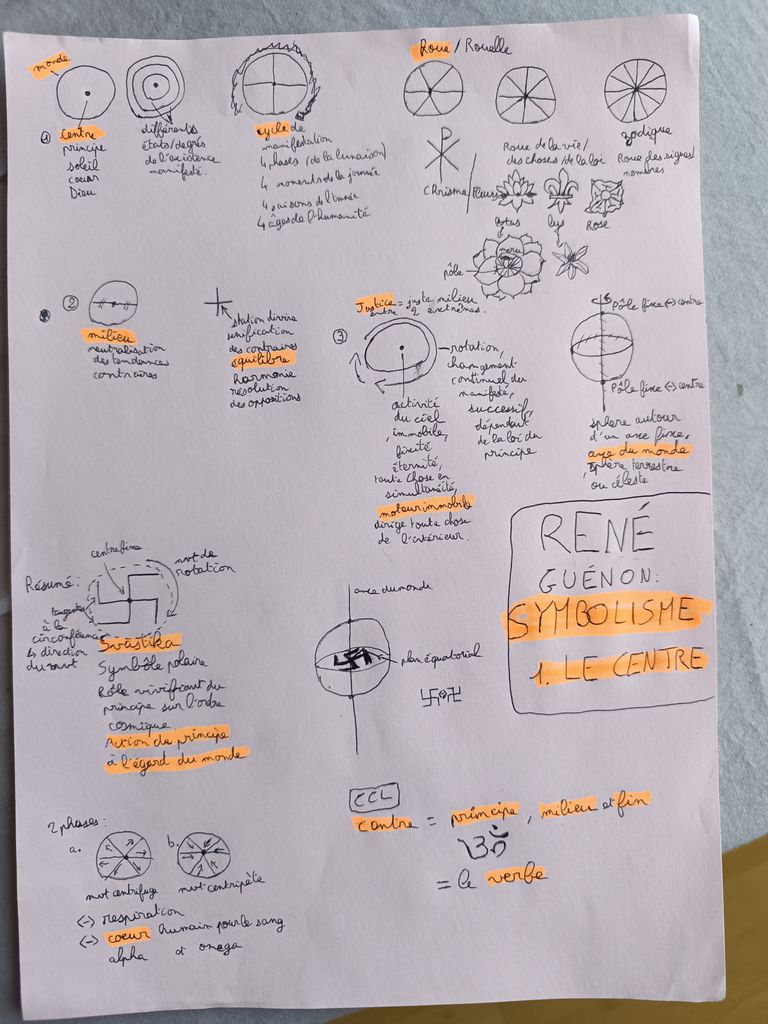 monde
① Centre
principe
soleil
coeur
Dieu
différents
états/degrés
de l'existence
manifesté.
cycle de
manifestation
4 phases (de la lunaison)
4 moments de la journée
4 saisons de l'année
4 âges de l'humanité
Roue / Rouelle
Chrisme / Fleurs
Roue de la vie/
des choses/de la loi
zodiaque
Roue des signes/
nombres
lotus
lys
Rose
meru
pôle
②
milieu
neutralisation
des tendances
contraires
station divine
unification
des contraires
équilibre
harmonie
résolution
des oppositions
Justice = juste milieu
entre 2 extrêmes.
③
activité
du ciel
, immobile,
fixité
éternité,
toute chose en
simultanéité,
moteur immobile
dirige toute chose
de l'intérieur.
rotation,
changement
continuel du
manifesté,
successif,
dépendant
de la loi du
principe
Pôle fixe (-) centre
Pôle fixe (-) centre
sphère autour
d'un axe fixe,
axe du monde
, sphère terrestre
ou céleste
RENÉ
GUÉNON:
SYMBOLISME
1. LE CENTRE
Résumé:
centre fixe
mvt de
rotation
tangentes
à la
circonférence
↳ direction
du mvt
Svastika
Symbôle polaire
Rôle vivifiant du
principe sur l'ordre
cosmique
Action du principe
à l'égard du monde
axe du monde
plan équatorial
2 phases:
a.
b.
mvt centrifuge
mvt centripète
(-) respiration
(-) coeur humain pour le sang
alpha et omega
CCL
Centre = principe, milieu et fin
ॐ
= le verbe